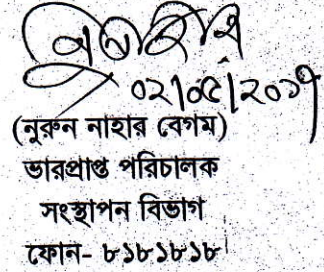 ০২/০৫/২০১৭
(নুরুন নাহার বেগম)
ভারপ্রাপ্ত পরিচালক
সংস্থাপন বিভাগ
ফোন- ৮১৮১৮১৮